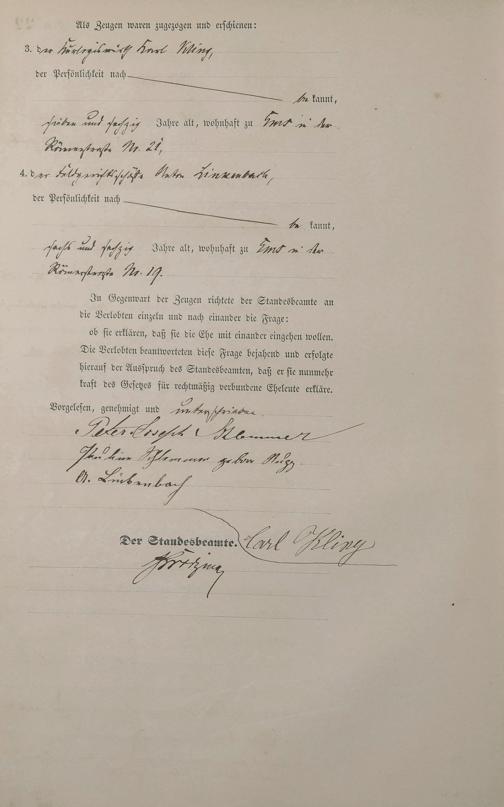 Als Zeugen waren zugezogen und erschienen:
3. der Karl Kling,
der Persönlichkeit nach
be kannt,
sieben und sechzig Jahre alt, wohnhaft zu Ems in der
Römerstraße No. 21,
4. der Feldgerichtsschöffe Anton Linkenbach,
der Persönlichkeit nach
be kannt,
sechs und sechzig Jahre alt, wohnhaft zu Ems in der
Römerstraße No. 19.
In Gegenwart der Zeugen richtete der Standesbeamte an
die Verlobten einzeln und nach einander die Frage:
ob sie erklären, daß sie die Ehe mit einander eingehen wollen.
Die Verlobten beantworteten diese Frage bejahend und erfolgte
hierauf der Ausspruch des Standesbeamten, daß er sie nunmehr
kraft des Gesetzes für rechtmäßig verbundene Eheleute erkläre.
Vorgelesen, genehmigt und unterschrieben
Peter Joseph Schlemmer
Pauline Schlemmer geborne Rupp
A. Linkenbach
Carl Kling
Der Standesbeamte.